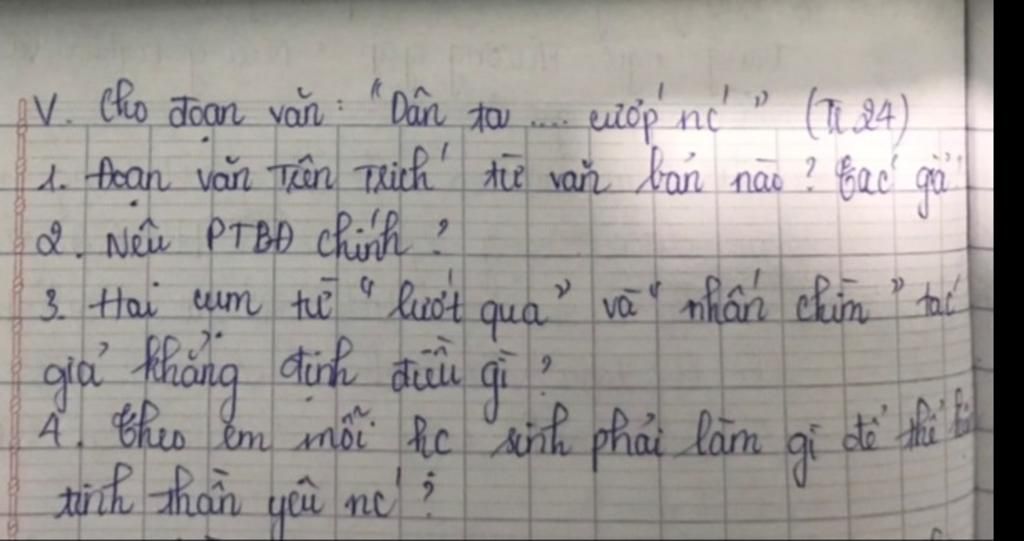 V. Cho đoạn văn: "Dân ta .... cướp nc'" (Tr 24)
1. Đoạn văn Trên Trích từ văn bản nào? Tác giả
2. Nêu PTBĐ chính?
3. Hai cụm từ "lướt qua" và "nhấn chìm" tác
giả khẳng định điều gì?
4. Theo em mỗi hc sinh phải làm gì để thể
tinh thần yêu nc'?